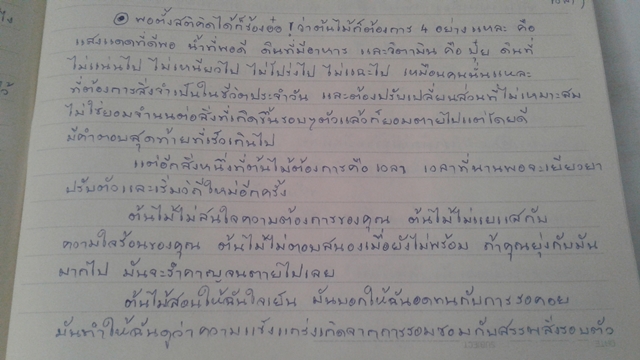 พอตั้งสติคิดได้ก็ร้องอ๋อ! ว่าต้นไม้ก็ต้องการ 4 อย่างแหละ คือ
แสงแดดที่ดีพอ น้ำที่พอดี ดินที่มีอาหาร และวิตามิน คือ ปุ๋ย ดินที่
ไม่แน่นไป ไม่เหนียวไป ไม่โปร่งไป ไม่แฉะไป เหมือนคนนั่นแหละ
ที่ต้องการสิ่งจำเป็นในชีวิตประจำวัน และต้องปรับเปลี่ยนส่วนที่ไม่เหมาะสม
ไม่ใช่ยอมจำนนต่อสิ่งที่เกิดขึ้นรอบๆตัวแล้วก็ยอมตายไปแต่โดยดี
มีคำตอบสุดท้ายที่เร็วเกินไป
แต่อีกสิ่งหนึ่งที่ต้นไม้ต้องการคือ เวลา เวลาที่นานพอจะเยียวยา
ปรับตัวและเริ่มวิถีใหม่อีกครั้ง
ต้นไม้ไม่สนใจความต้องการของคุณ ต้นไม้ไม่แยแสกับ
ความใจร้อนของคุณ ต้นไม้ไม่ตอบสนองเมื่อยังไม่พร้อม ถ้าคุณยุ่งกับมัน
มากไป มันจะรำคาญจนตายไปเลย
ต้นไม้สอนให้ฉันใจเย็น มันบอกให้ฉันอดทนกับการรอคอย
มันทำให้ฉันดูว่าความแข็งแกร่งเกิดจากการรอมชอมกับสรรพสิ่งรอบตัว